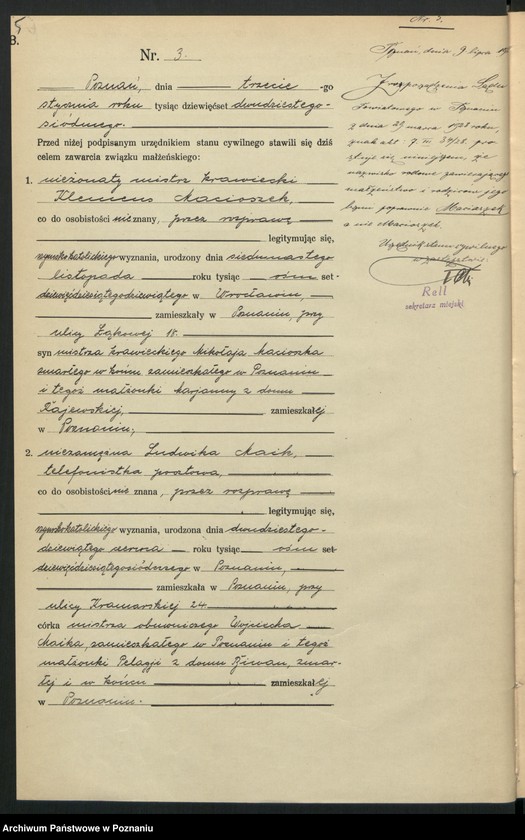 5
B.
Nr. 3.
Poznań, dnia trzecie -go
stycznia roku tysiąc dziewięćset dwudziestego-
siódmego.
Przed niżej podpisanym urzędnikiem stanu cywilnego stawili się dziś
celem zawarcia związku małżeńskiego:
1. nieżonaty mistrz krawiecki
Klemens Macioszek,
co do osobistości nieznany, przez rozprawę
legitymując się,
rzymskokatolickiego wyznania, urodzony dnia siedmnastego
listopada roku tysiąc ośm set-
dziewięćdziesiątegodziewiątego w Wrocławiu,
zamieszkały w Poznaniu, przy
ulicy Łąkowej 18.
syn mistrza krawieckiego Mikołaja Macioszka
zmarłego w końcu zamieszkałego w Poznaniu
i tegoż małżonki Marjanny z domu
Majewskiej, zamieszkałej
w Poznaniu;
2. niezamężna Ludwika Maik,
telefonistka pocztowa,
co do osobistości nie znana, przez rozprawę
legitymując się,
rzymskokatolickiego wyznania, urodzona dnia dwudziestego-
dziewiątego czerwca roku tysiąc ośm set
dziewięćdziesiątegosiódmego w Poznaniu,
zamieszkała w Poznaniu, przy
ulicy Kramarskiej 24.
córka mistrza obuwniczego Wojciecha
Maika, zamieszkałego w Poznaniu i tegoż
małżonki Pelagji z domu zmar-
łej i w końcu zamieszkałej
w Poznaniu.
Nr. 3.
Poznań, dnia 9 lipca
Z rozporządzenia Sądu
Powiatowego w Poznaniu
z dnia 29 marca 1928 roku,
znak akt 7. III. pro-
stuje się niniejszem, że
nazwisko rodowe zawierającego
małżeństwo i rodziców jego
brzmi poprawnie
a nie
Urzędnik stanu cywilnego
w zastępstwie:
Rall
sekretarz miejski
Archiwum Państwowe w Poznaniu